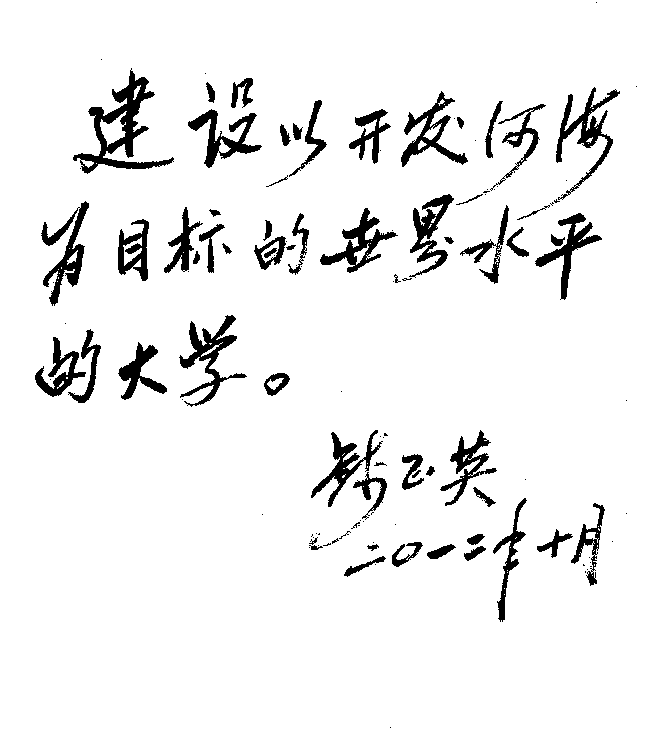 建设以开发河海
为目标的世界水平
的大学。
钱正英
二〇一二年十月